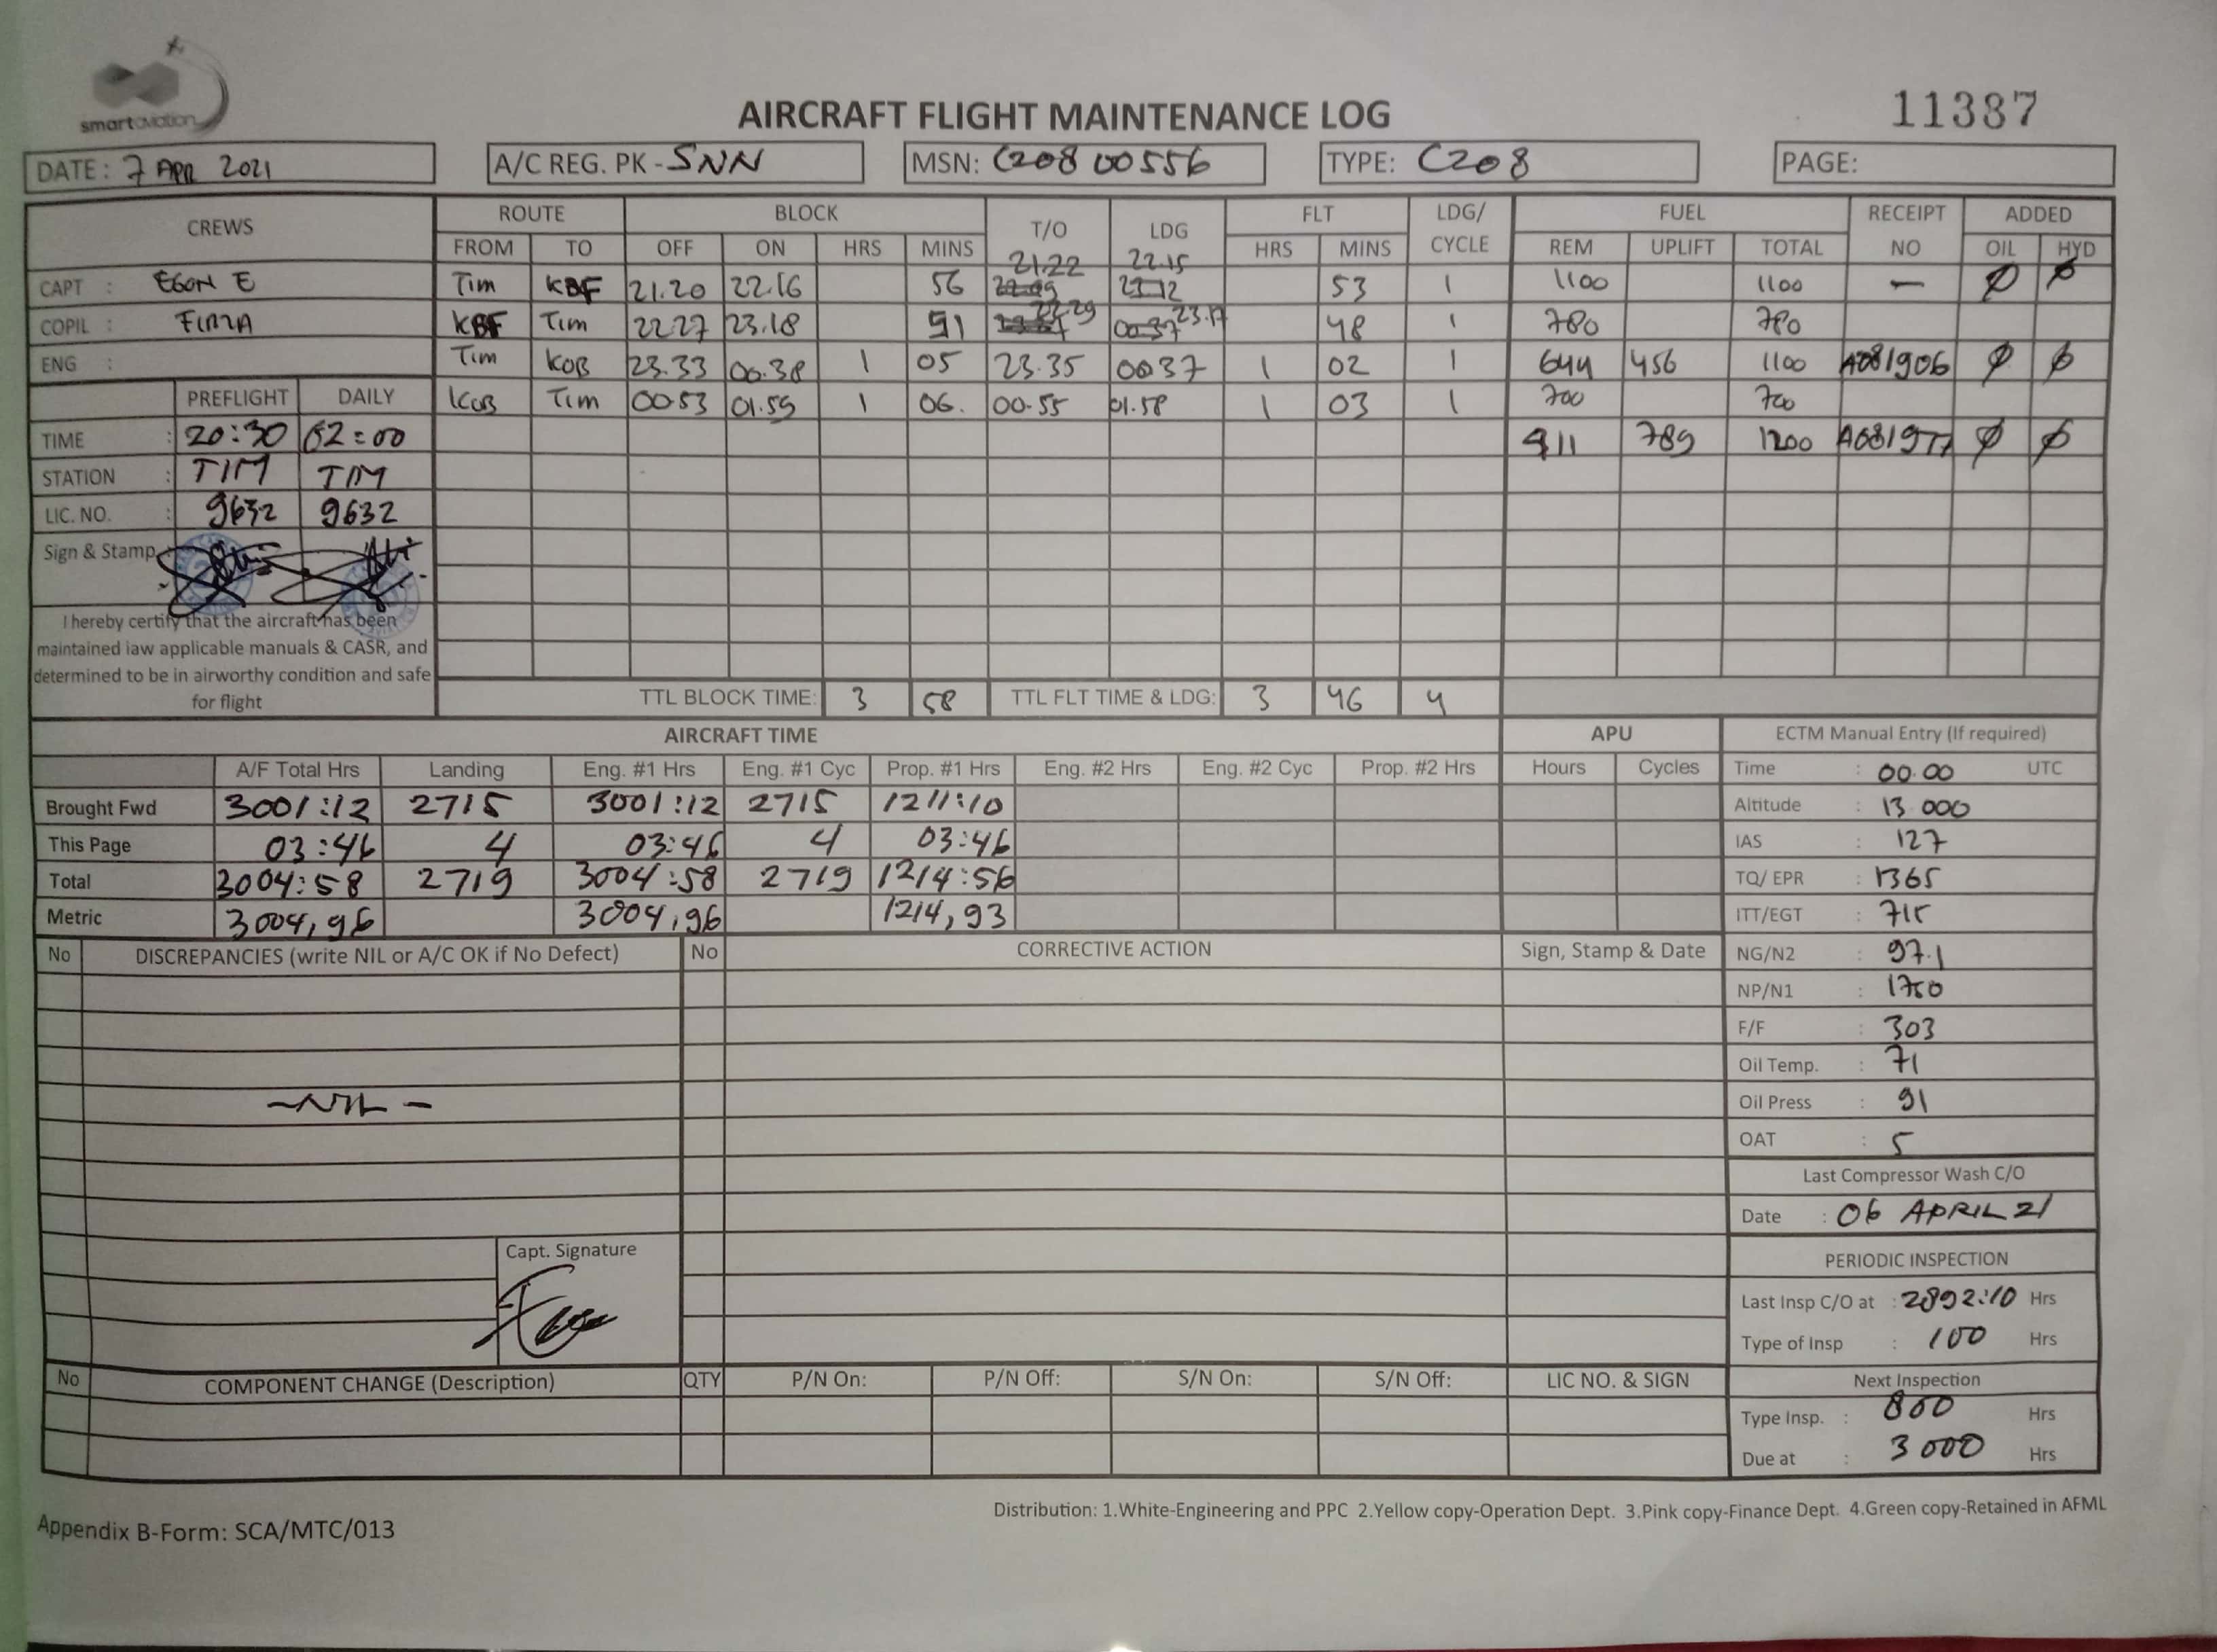 smart aviation
AIRCRAFT FLIGHT MAINTENANCE LOG
11387
DATE: 7 APR 2021 A/C REG. PK - SNN MSN: C208 00556 TYPE: C208 PAGE:
CREWS ROUTE BLOCK T/O LDG FLT LDG/ CYCLE FUEL RECEIPT NO ADDED
FROM TO OFF ON HRS MINS HRS MINS REM UPLIFT TOTAL OIL HYD
21.22 22.15
CAPT : EGON E Tim KBF 21.20 22.16 56 53 1 1100 1100 — Ø Ø
22.29 23.17
COPIL : FIRZA KBF Tim 22.27 23.18 51 48 1 780 780
ENG : Tim KOB 23.33 00.38 1 05 23.35 0037 1 02 1 644 456 1100 A081906 Ø Ø
PREFLIGHT DAILY KOB Tim 00 53 01.59 1 06. 00.55 01.58 1 03 1 700 700
TIME : 20:30 02=00 411 789 1200 A081977 Ø Ø
STATION : TIM TIM
LIC. NO. : 9632 9632
Sign & Stamp :
I hereby certify that the aircraft has been
maintained iaw applicable manuals & CASR, and
determined to be in airworthy condition and safe
for flight
TTL BLOCK TIME: 3 58 TTL FLT TIME & LDG: 3 46 4
AIRCRAFT TIME APU ECTM Manual Entry (If required)
A/F Total Hrs Landing Eng. #1 Hrs Eng. #1 Cyc Prop. #1 Hrs Eng. #2 Hrs Eng. #2 Cyc Prop. #2 Hrs Hours Cycles Time : 00.00 UTC
Brought Fwd 3001:12 2715 3001:12 2715 1211:10 Altitude : 13 000
This Page 03:46 4 03:46 4 03:46 IAS : 127
Total 3004:58 2719 3004:58 2719 1214:56 TQ/ EPR : 1365
Metric 3004,96 3004,96 1214,93 ITT/EGT : 715
No DISCREPANCIES (write NIL or A/C OK if No Defect) No CORRECTIVE ACTION Sign, Stamp & Date NG/N2 : 97.1
NP/N1 : 1750
F/F : 303
Oil Temp. : 71
- NIL - Oil Press : 91
OAT : 5
Last Compressor Wash C/O
Date : 06 APRIL 21
Capt. Signature
PERIODIC INSPECTION
Last Insp C/O at : 2892:10 Hrs
Type of Insp : 100 Hrs
No COMPONENT CHANGE (Description) QTY P/N On: P/N Off: S/N On: S/N Off: LIC NO. & SIGN Next Inspection
Type Insp. : 800 Hrs
Due at : 3000 Hrs
Distribution: 1.White-Engineering and PPC 2.Yellow copy-Operation Dept. 3.Pink copy-Finance Dept. 4.Green copy-Retained in AFML
Appendix B-Form: SCA/MTC/013